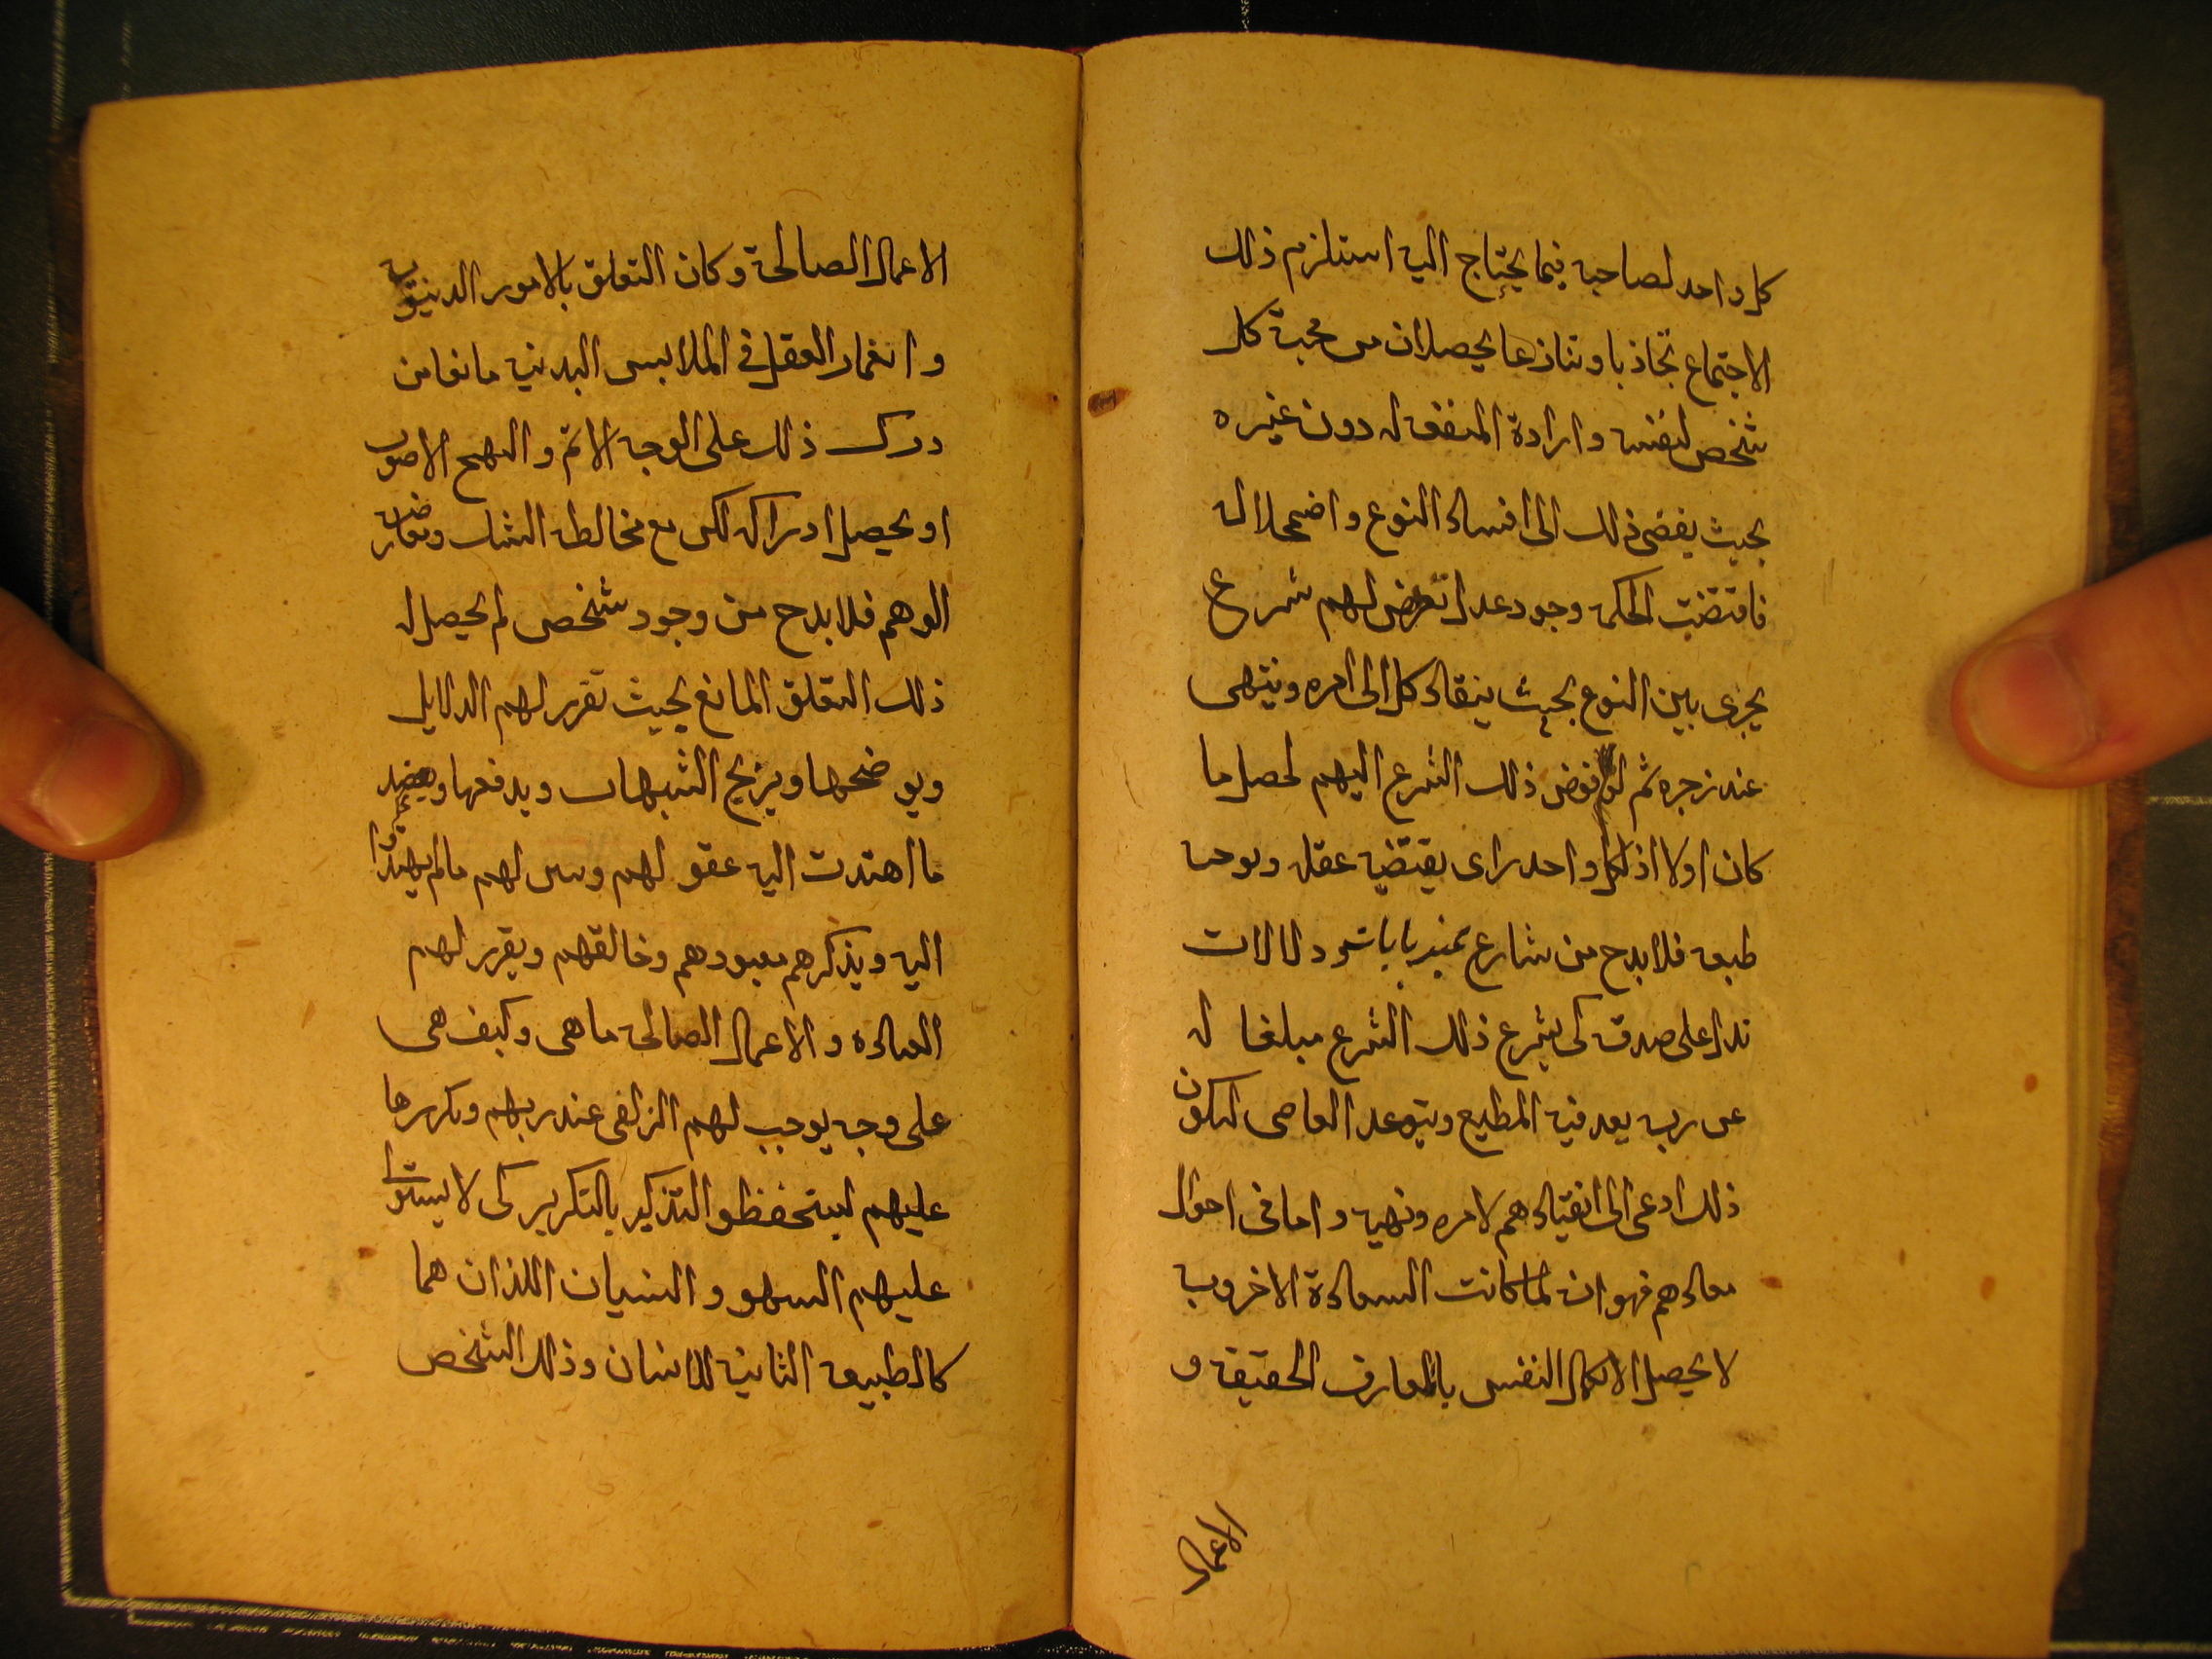 كل واحد لصاحبه فيما يحتاج اليه استلزم ذلك
الاجتماع تجاذبا وتنازعا يحصلان من محبة كل
شخص لنفسه وارادة المنفعة له دون غيره
بحيث يفضى ذلك الى افساد النوع واضمحلاله
فاقتضت الحكمه وجود عدل تفرض لهم شرع
يجرى بين النوع بحيث ينقاد كل الى امره وينتهى
عند زجره ثم لو فوض ذلك الشرع اليهم لحصل ما
كان اولا اذ لكل واحد راى يقتضيه عقله ويوجبه
طبعه فلا بد ح من شارع متميز بايات ودلالات
تدل على صدقه كى يشرع ذلك الشرع مبلغا له
عن ربه يعد فيه المطيع ويتوعد العاصى ليكون
ذلك ادعى الى انقيادهم لامره ونهيه واما فى احوال
معادهم فهو انه لما كانت السعادة الاخرويه
لا يحصل الا بكمال النفس بالمعارف الحقيقه و
الاعمال
الاعمال الصالحة وكان التعلق بالامور الدنيويه
وانغمار العقل فى الملابس البدنيه مانعا من
درك ذلك على الوجه الاتم والنهج الاصوب
او يحصل ادراكه لكن مع مخالطه الشك ومعارضه
الوهم فلا بد ح من وجود شخص لم يحصل له
ذلك التعلق المانع بحيث تقرر لهم الدلايل
ويوضحها ويزيح الشبهات ويدفعها ويعضد
ما اهتدت اليه عقولهم وبين لهم مالم يهتدوا
اليه ويذكرهم معبودهم وخالقهم ويقرر لهم
العباده والاعمال الصالحه ماهى وكيف هى
على وجه يوجب لهم الزلفى عند ربهم ويكررها
عليهم ليستحفظو التذكير بالتكرير كى لا يستولى
عليهم السهو والنسيان اللذان هما
كالطبيعه الثانيه للانسان وذلك الشخص